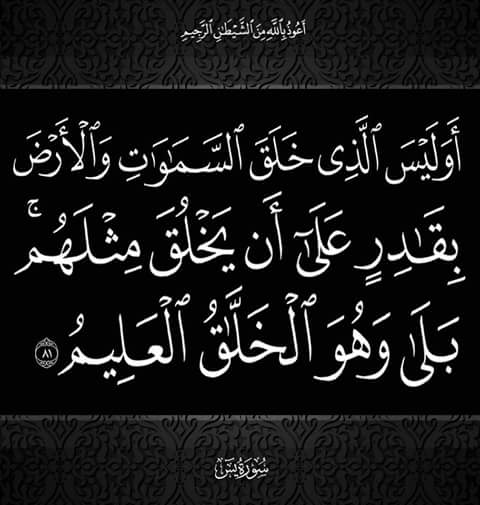 أَعُوذُ بِاللَّهِ مِنَ الشَّيْطَانِ الرَّجِيمِ
أَوَلَيْسَ ٱلَّذِى خَلَقَ ٱلسَّمَـٰوَٰتِ وَٱلْأَرْضَ
بِقَـٰدِرٍ عَلَىٰٓ أَن يَخْلُقَ مِثْلَهُم ۚ
بَلَىٰ وَهُوَ ٱلْخَلَّـٰقُ ٱلْعَلِيمُ ٨١
سُورَةُ يس